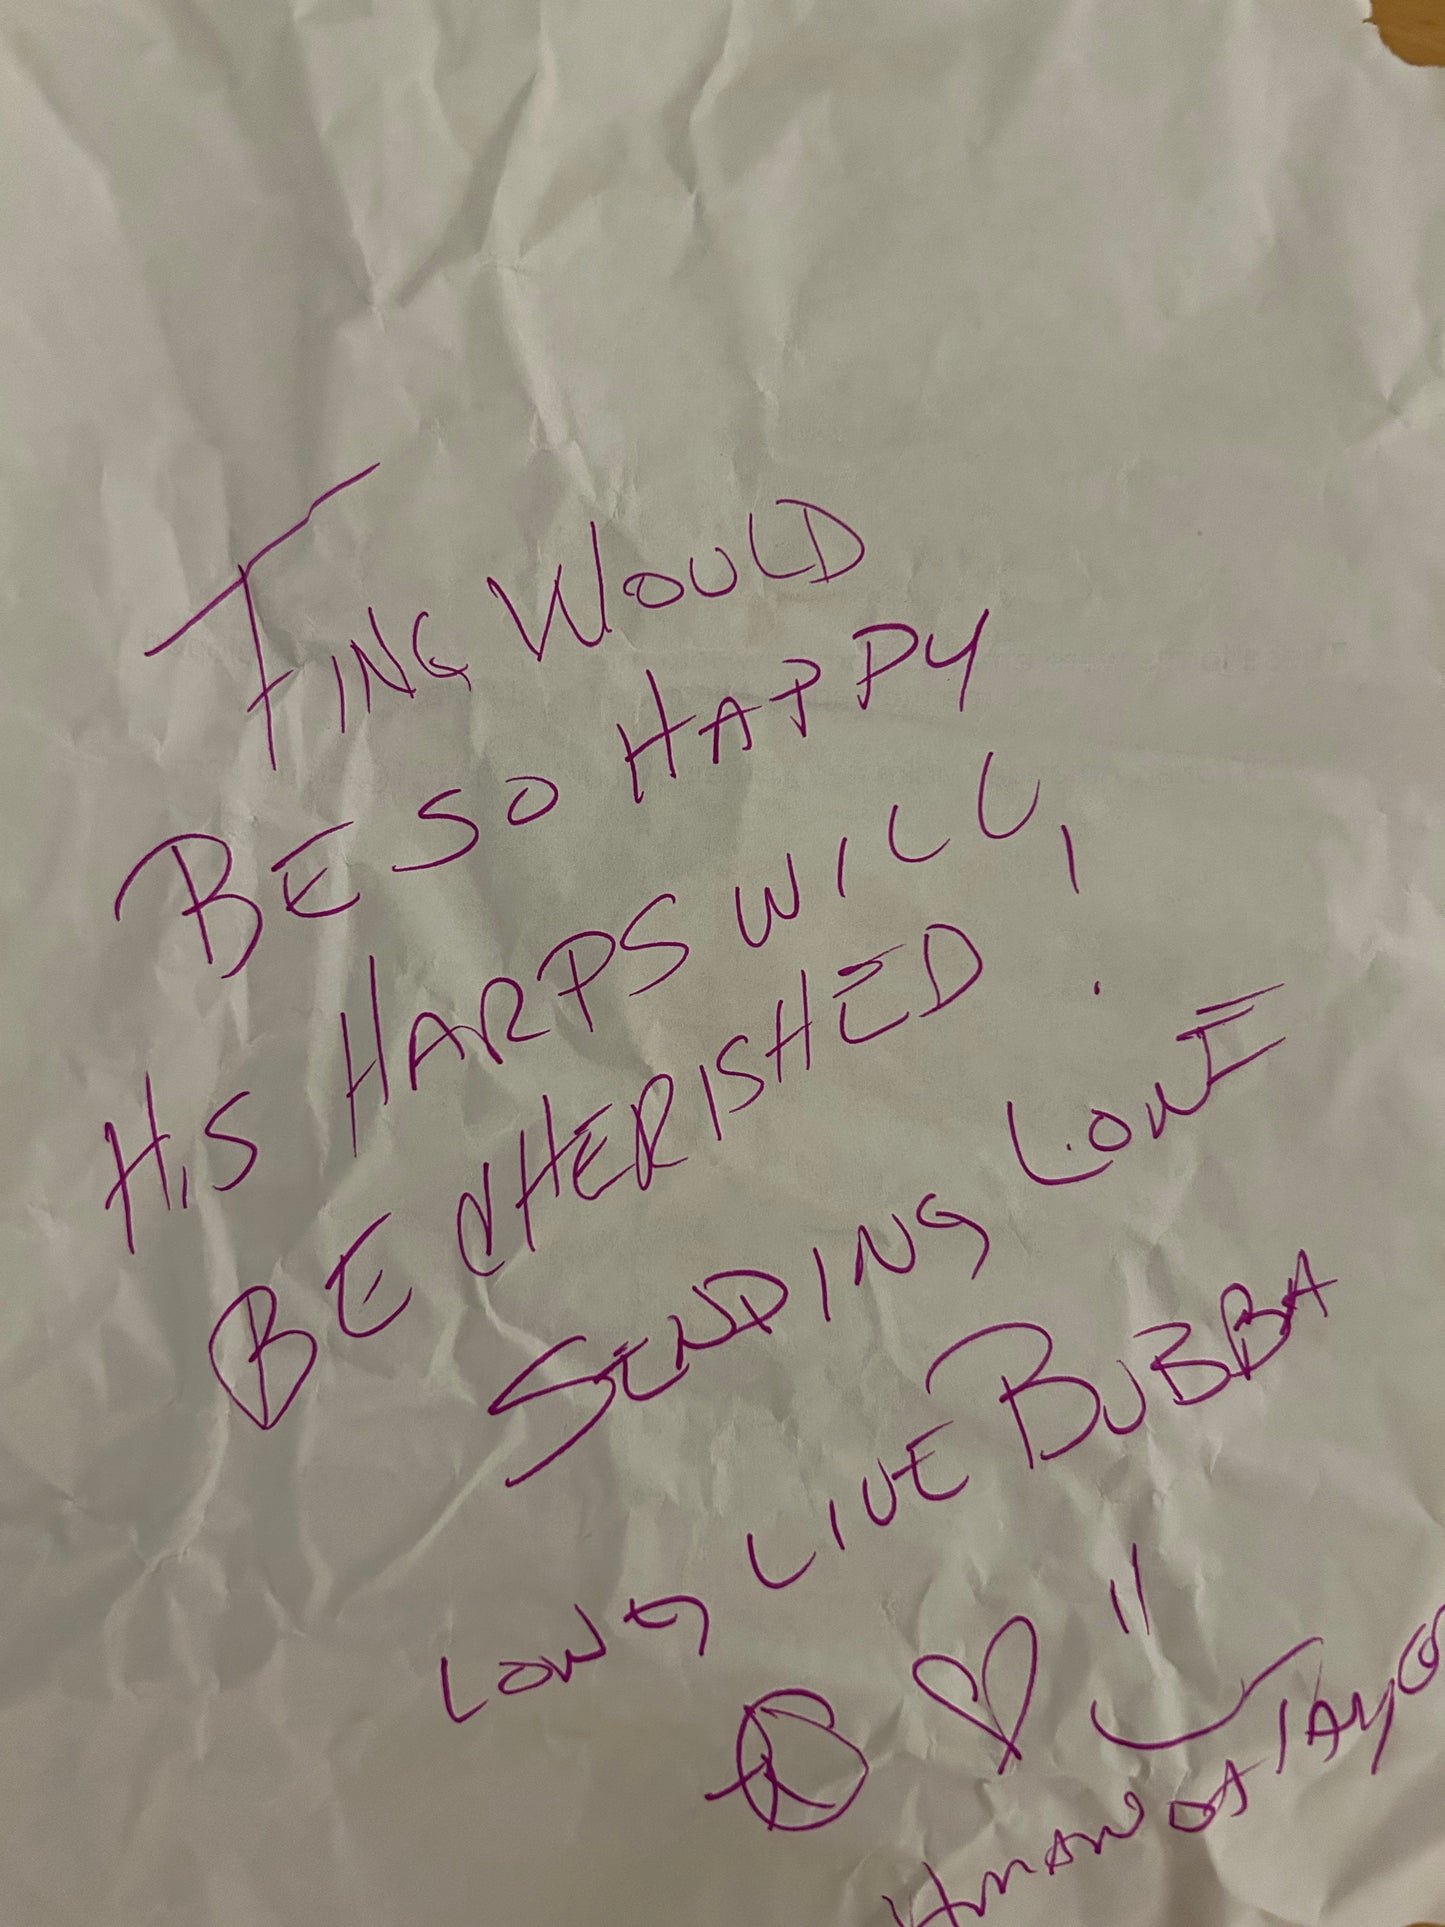 TING WOULD
BE SO HAPPY
HIS HARPS WILL
BE CHERISHED!
SENDING LOVE
LONG LIVE BUBBA